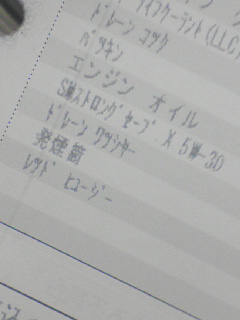 ライフクーラント(LLC)
ドレーン コック
パッキン
エンジン オイル
SMストロングセーブ X 5W-30
ドレーン ワッシャー
発煙筒
レッド ヒュージー